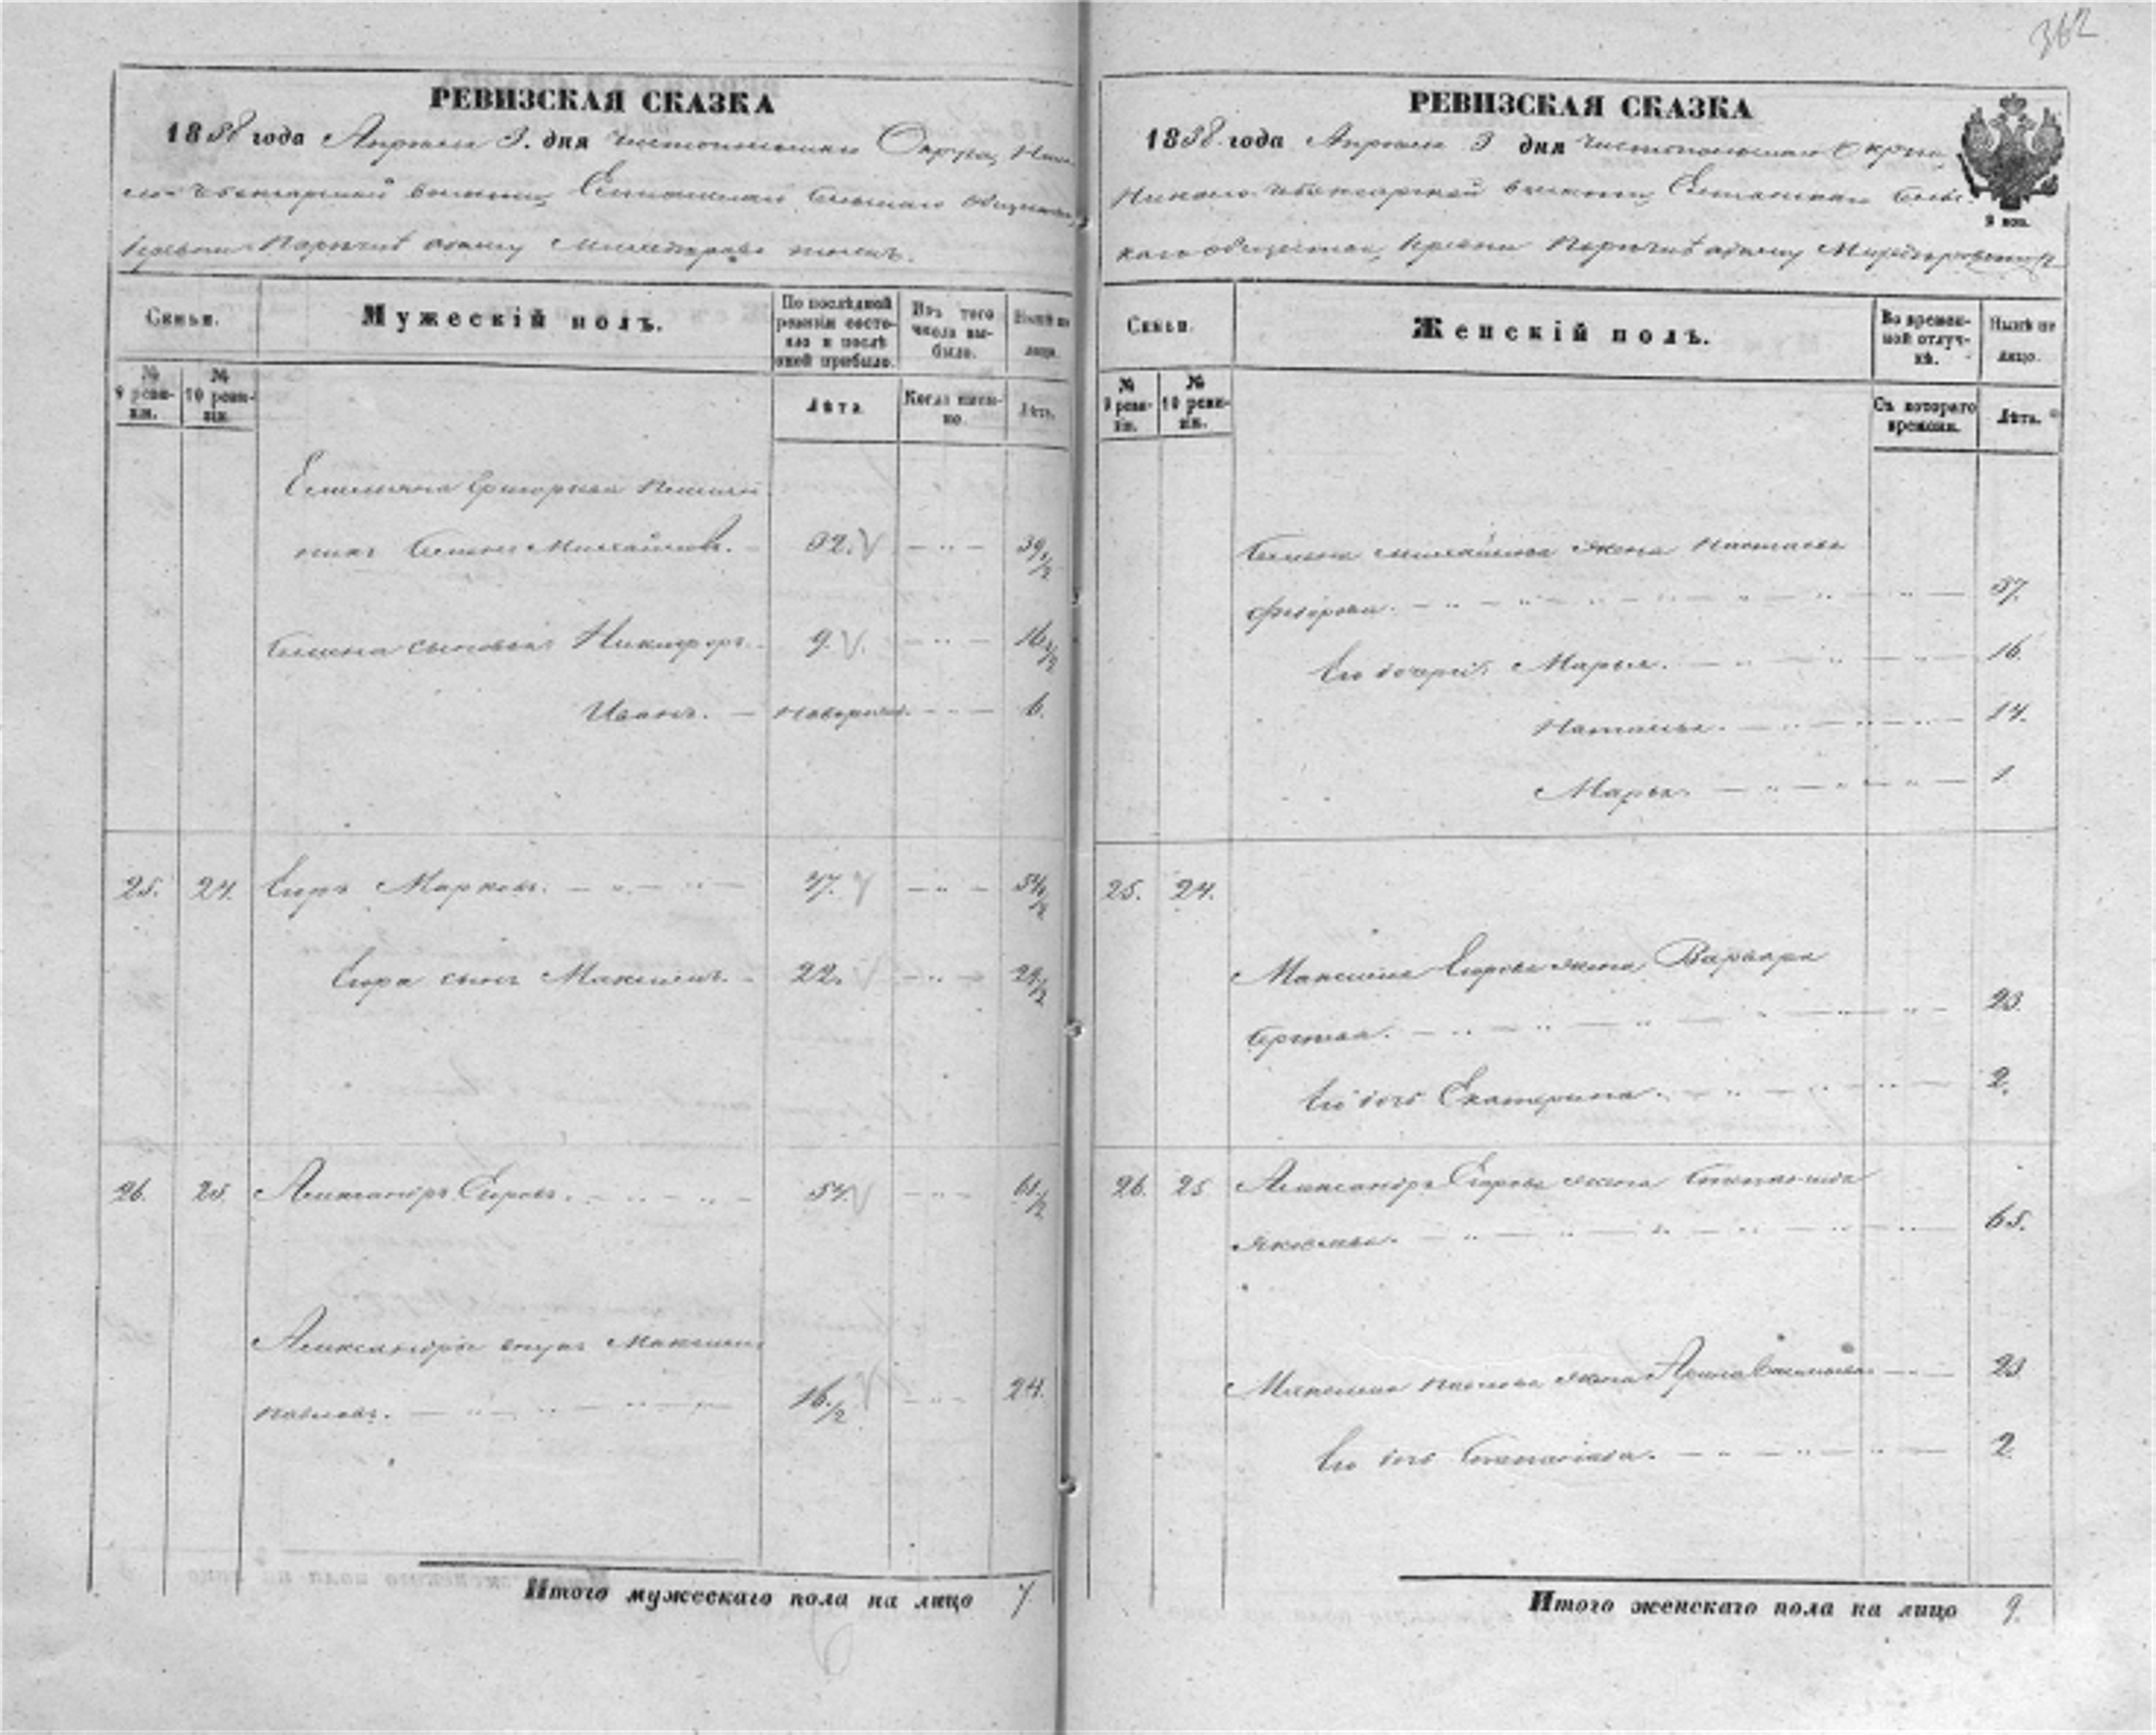 362
РЕВИЗСКАЯ СКАЗКА
1858 года Апреля 3. дня Чистопольскаго Округа,
волости, Сельскаго общества,
деревни
Семьи.
Мужескій полъ.
По послѣдней ревизіи состояло и послѣ оной прибыло.
Изъ того числа выбыло.
Нынѣ на лицо.
№ 9 ревизіи.
№ 10 ревизіи.
Лѣта.
Когда именно.
Лѣта.
Емельяна Григорьева племян
никъ Семенъ Михайловъ. 32. 39 1/2
Семена сыновья: Никифоръ. 9. 16 1/2
Иванъ. новорожд. 6.
25. 24. Егоръ Марковъ. 47. 54 1/2
Егора сынъ Максимъ. 22. 29 1/2
26. 25. Александръ Егоровъ. 54. 61 1/2
Александра внукъ Максимъ
Павловъ. 16 1/2 24.
Итого мужескаго пола на лицо 7
РЕВИЗСКАЯ СКАЗКА
1858 года Апреля 3 дня Чистопольскаго Округа,
волости,
скаго общества, деревни
3 коп.
Семьи.
Женскій полъ.
Во временной отлучкѣ.
Нынѣ на лицо.
№ 9 ревизіи.
№ 10 ревизіи.
Съ котораго времени.
Лѣта.
Семена Михайлова жена Настасья
Федорова. 37.
Его дочери: Марья. 16.
Наталья. 14.
Марья. 1
25. 24.
Максима Егорова жена Варвара
Сергеева. 23.
Его дочь Екатерина. 2.
26. 25 Александра Егорова жена Степанида
Яковлева. 65.
Максима Павлова жена Арина Васильева 23
Его дочь Степанида. 2
Итого женскаго пола на лицо 9.